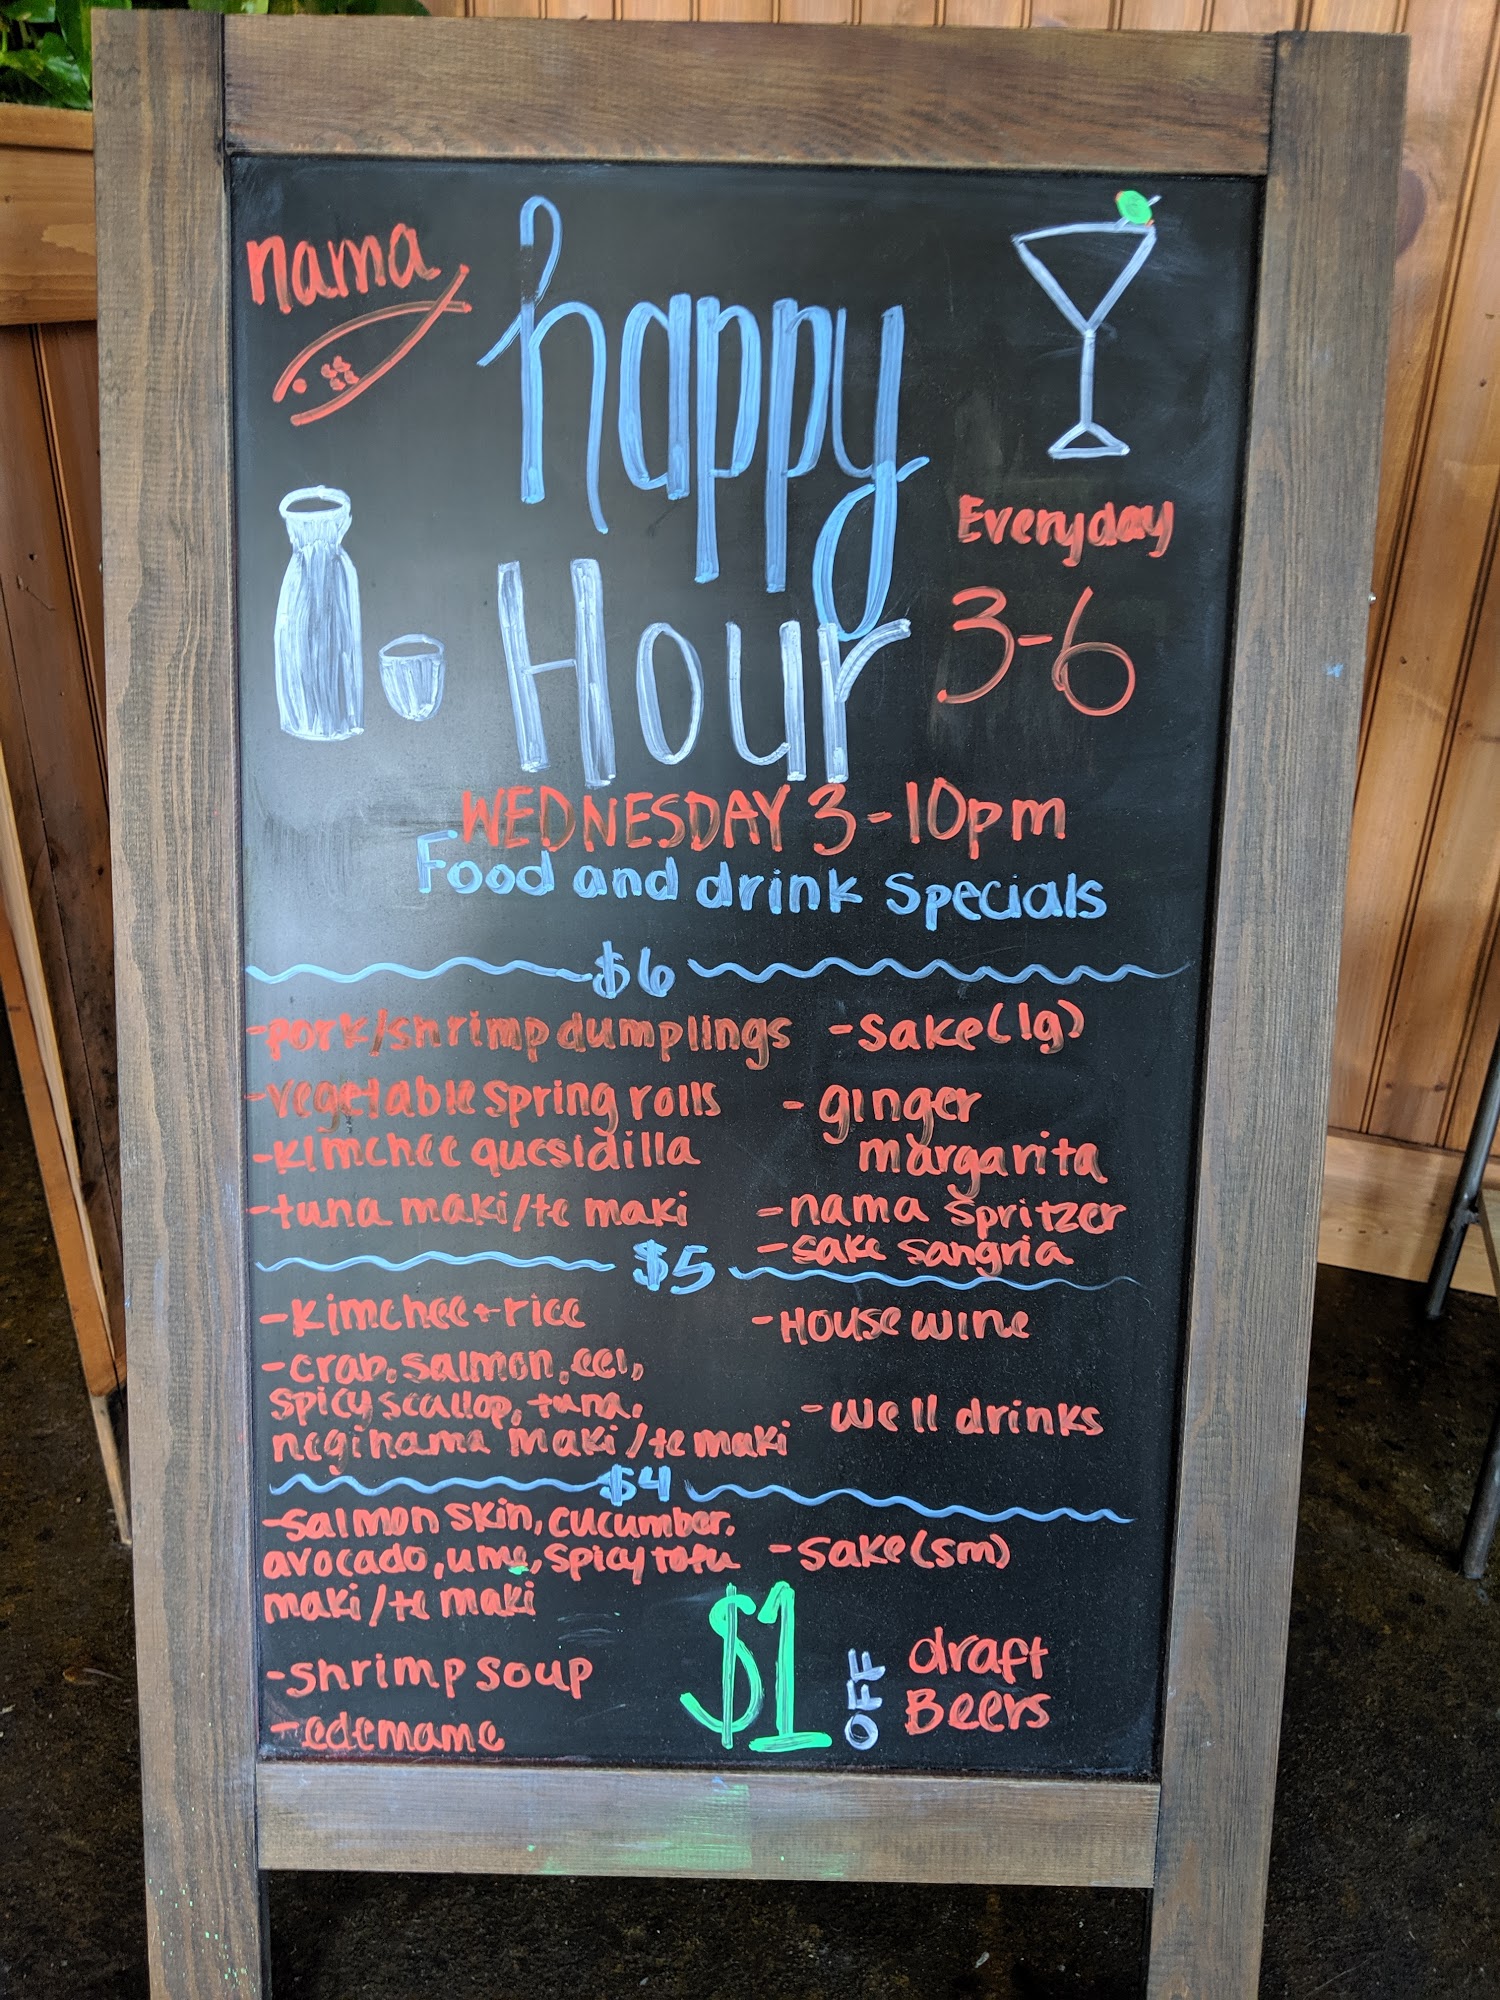 nama
happy
Hour
Everyday
3-6
WEDNESDAY 3-10pm
Food and drink specials
$6
-pork/shrimp dumplings
-vegetable spring rolls
-kimchee quesidilla
-tuna maki/te maki
-sake(lg)
-ginger
margarita
-nama spritzer
-sake sangria
$5
-kimchee+rice
-crab, salmon, eel,
spicy scallop, tuna,
negihama maki/te maki
-House wine
-well drinks
$4
-salmon skin, cucumber,
avocado, ume, spicy tofu
maki/te maki
-shrimp soup
-edemame
-sake(sm)
$1
OFF
draft
Beers